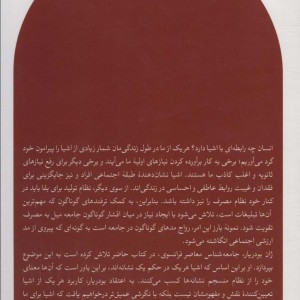 انسان چه رابطه‌ای با اشیا دارد؟ هر یک از ما در طول زندگی‌مان شمار زیادی از اشیا را پیرامون خود
گرد می‌آوریم؛ برخی به کار برآورده کردن نیازهای اولیهٔ ما می‌آیند و برخی دیگر برای رفع نیازهای
ثانویه و اغلب کاذب ما هستند. اشیا نشان‌دهندهٔ طبقهٔ اجتماعی افراد و نیز جایگزینی برای
فقدان و غیبت روابط عاطفی و احساسی در زندگی‌اند. از سوی دیگر، نظام تولید برای بقا باید در
کنار خود نظام مصرف را نیز داشته باشد. بنابراین، به کمک ترفندهای گوناگون که مهم‌ترین
آن‌ها تبلیغات است، تلاش می‌شود با ایجاد نیاز در میان اقشار گوناگون جامعه میل به مصرف
تقویت شود. نمونهٔ بارز این امر، رواج مدهای گوناگون در جامعه است به گونه‌ای که پیروی از مد
ارزشی اجتماعی انگاشته می‌شود.
ژان بودریار، جامعه‌شناس معاصر فرانسوی، در کتاب حاضر تلاش کرده است به این موضوع
بپردازد. او بر این اساس که اشیا هر یک در حکم یک نشانه‌اند، بر این باور است که آن‌ها معنای
خود را از نظام منسجم نشانه‌ها کسب می‌کنند. به اعتقاد بودریار، کاربرد هر یک از اشیا
تعیین‌کنندهٔ نقش و مفهومشان نیست بلکه با نگرشی عمیق‌تر درخواهیم یافت که اشیا ما